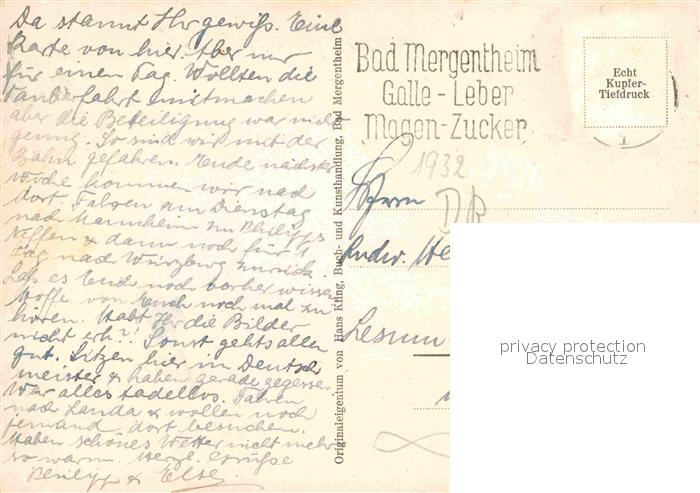 Da staunt Ihr gewiß. Eine
Karte von hier. Aber nur
für einen Tag. Wollten die
Tauberfahrt mitmachen
aber die Beteiligung war nicht
genug. So sind wir mit der
Bahn gefahren. Ende nächster
Woche kommen wir nach
dort. Fahren am Dienstag
nach Mannheim zu Philipps
Neffen & dann noch für 1
Tag nach Würzburg zurück.
Laß es Euch noch vorher wissen
Hoffe von Euch noch mal zu
hören. Habt Ihr die Bilder
nicht erh?! Sonst gehts allen
gut. Sitzen hier im Deutsch
meister & haben gerade gegessen
War alles tadellos. Fahren
nach Lauda & wollen noch
jemand dort besuchen.
Haben schönes Wetter nicht mehr
so warm. Herzl. Grüße
Philipp & Else.
Originaleigentum von Hans Kling, Buch- und Kunsthandlung, Bad Mergentheim
Bad Mergentheim
Galle - Leber
Magen - Zucker
Echt
Kupfer-
Tiefdruck
1932
Herrn
Ludw. He
Lesum
privacy protection
Datenschutz